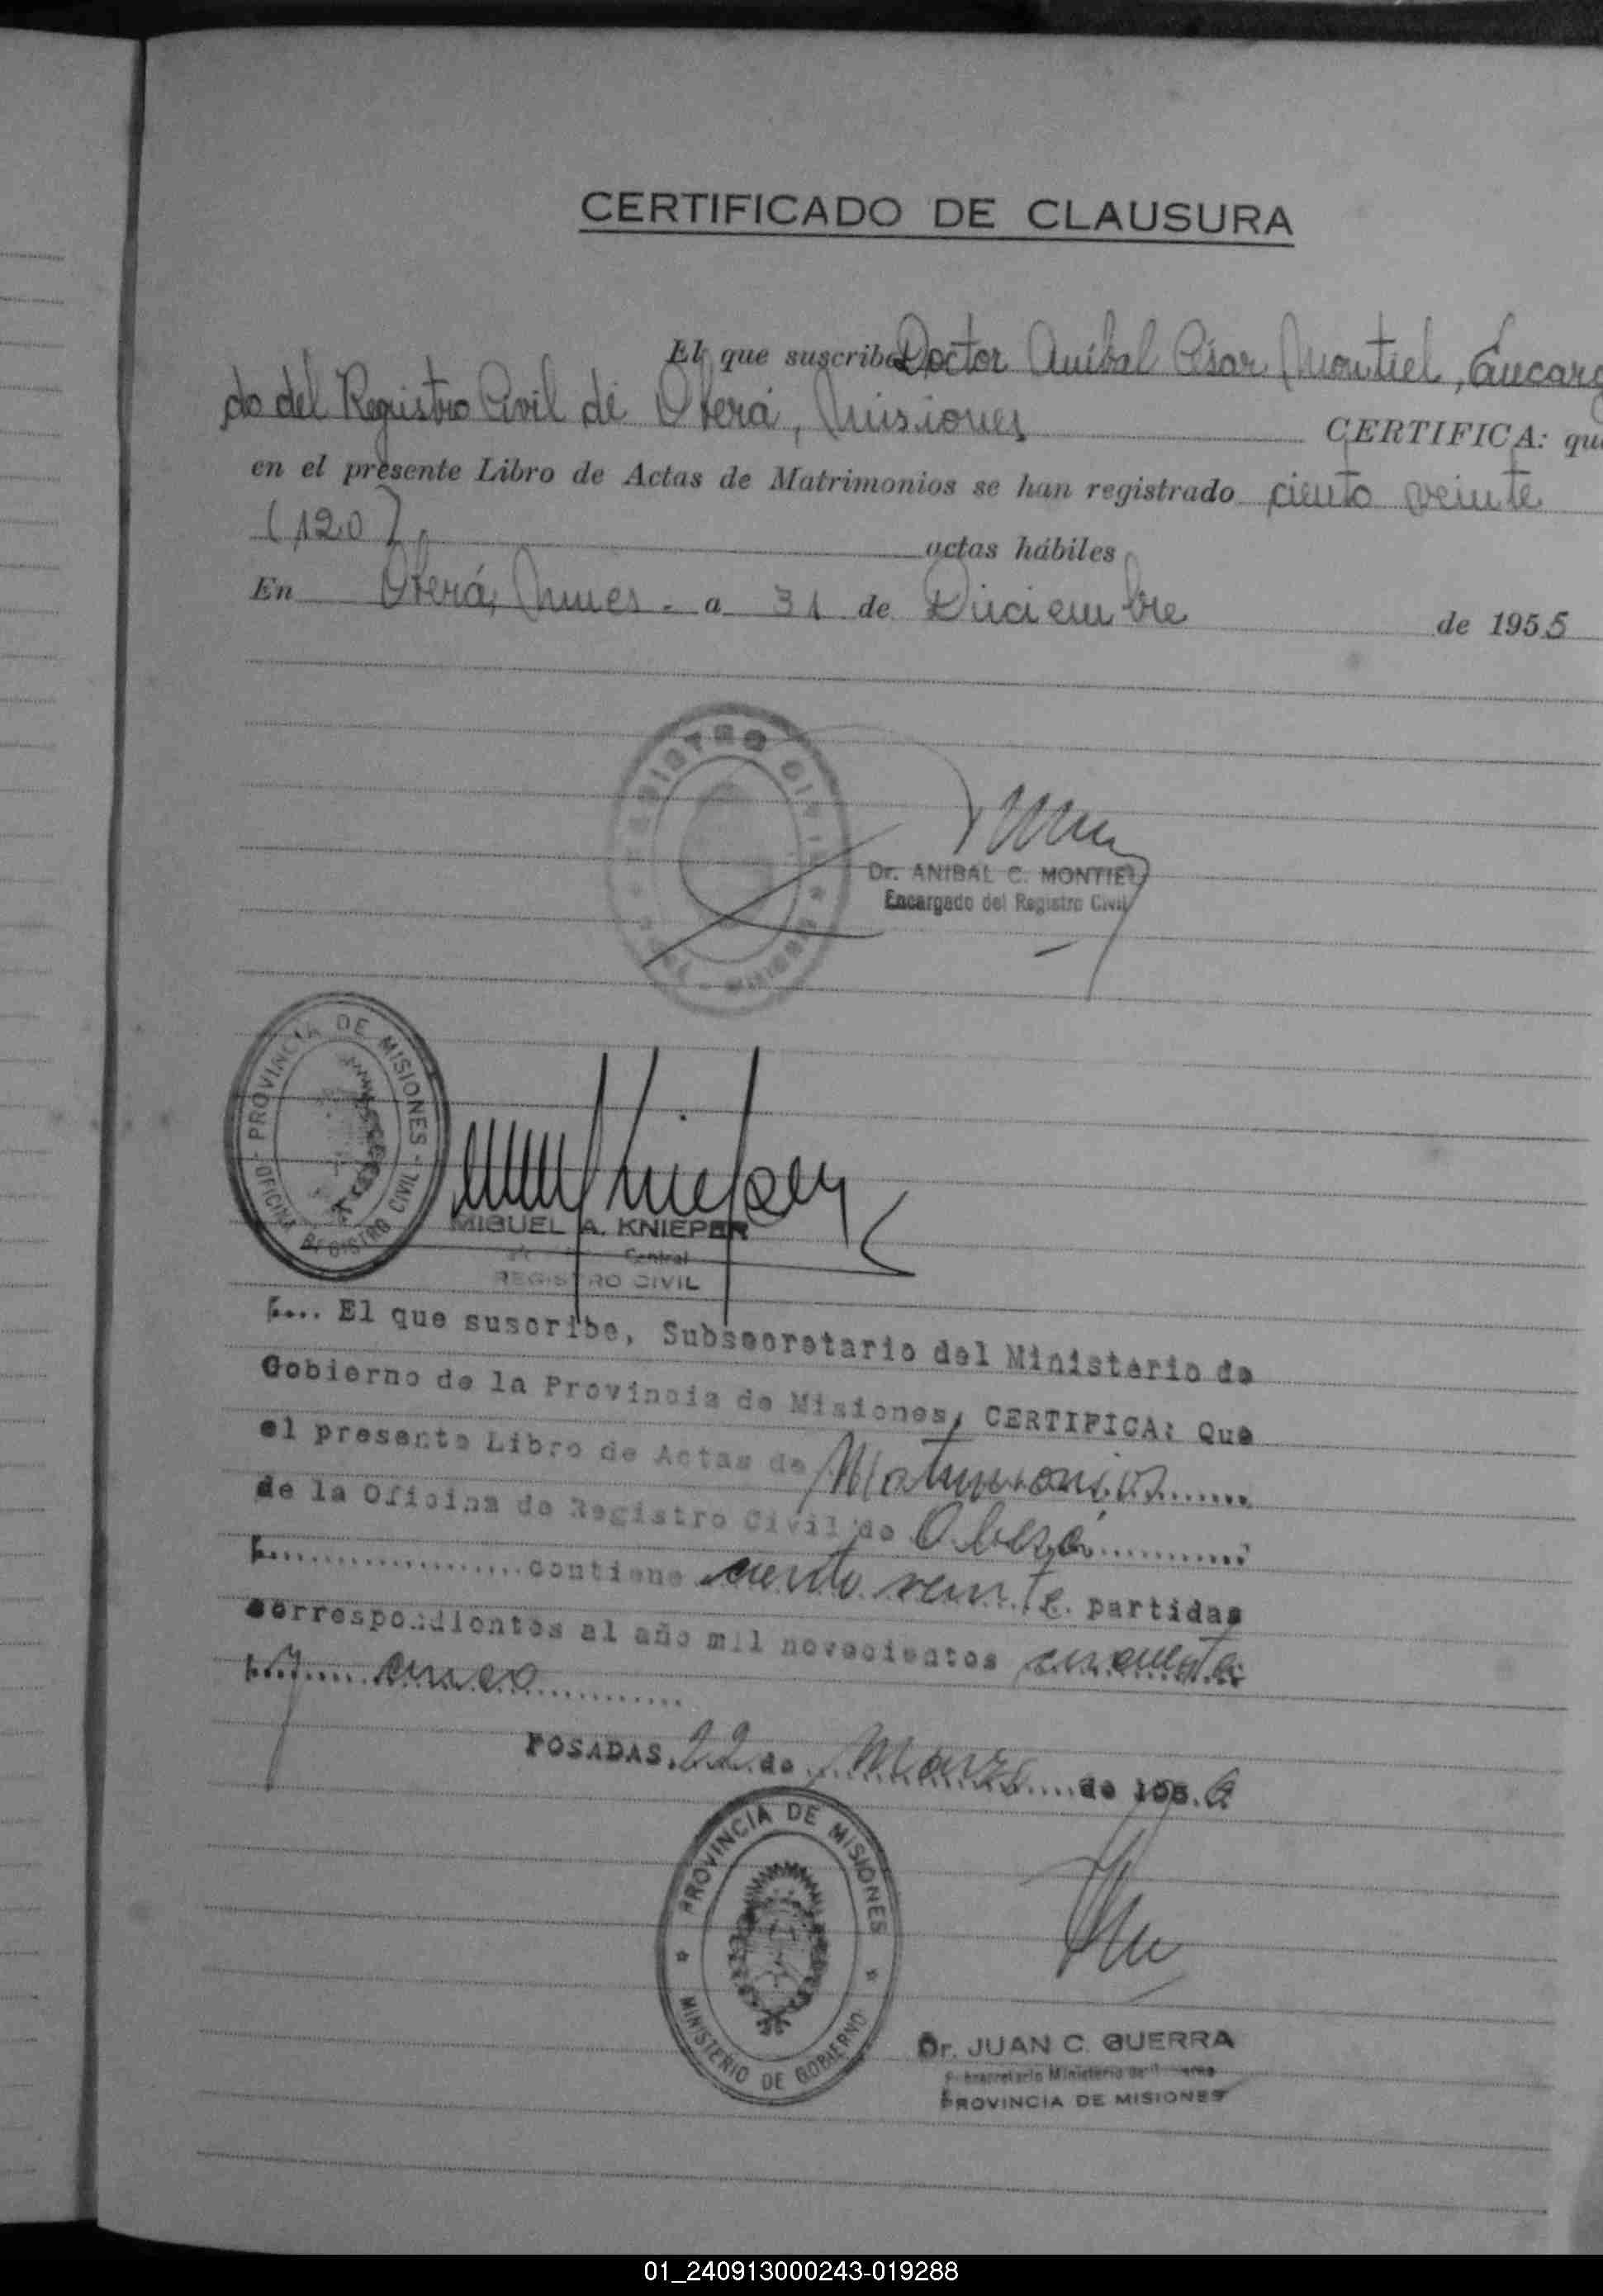 CERTIFICADO DE CLAUSURA
El que suscribe Doctor Anibal César Montiel, Encarga
do del Registro Civil de Oberá, Misiones CERTIFICA: que
en el presente Libro de Actas de Matrimonios se han registrado ciento veinte
(120) actas hábiles
En Oberá, Mnes. a 31 de Diciembre de 1955
REGISTRO CIVIL
Dr. ANIBAL C. MONTIEL
Encargado del Registro Civil
PROVINCIA DE MISIONES
OFICINA REGISTRO CIVIL
MIGUEL A. KNIEPER
Central
REGISTRO CIVIL
.... El que suscribe, Subsecretario del Ministerio de
Gobierno de la Provincia de Misiones, CERTIFICA: Que
el presente Libro de Actas de Matrimonios
de la Oficina de Registro Civil de Oberá
contiene ciento veinte partidas
correspondientes al año mil novecientos cincuenta
y cinco
POSADAS, 22 de Marzo de 195.6
PROVINCIA DE MISIONES
MINISTERIO DE GOBIERNO
Dr. JUAN C. GUERRA
Subsecretario Ministerio de
PROVINCIA DE MISIONES
01_240913000243-019288